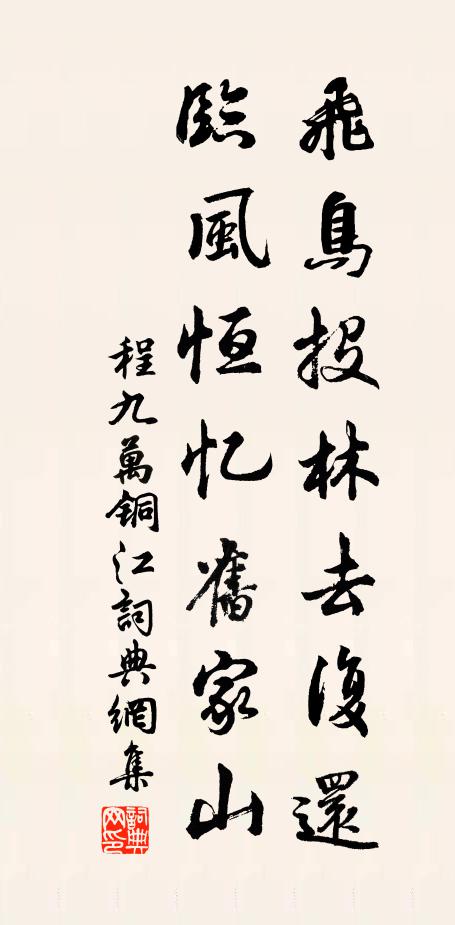 飛鳥投林去復還
臨風恒忆舊家山
程九萬铜江詞典網集
詞典網印